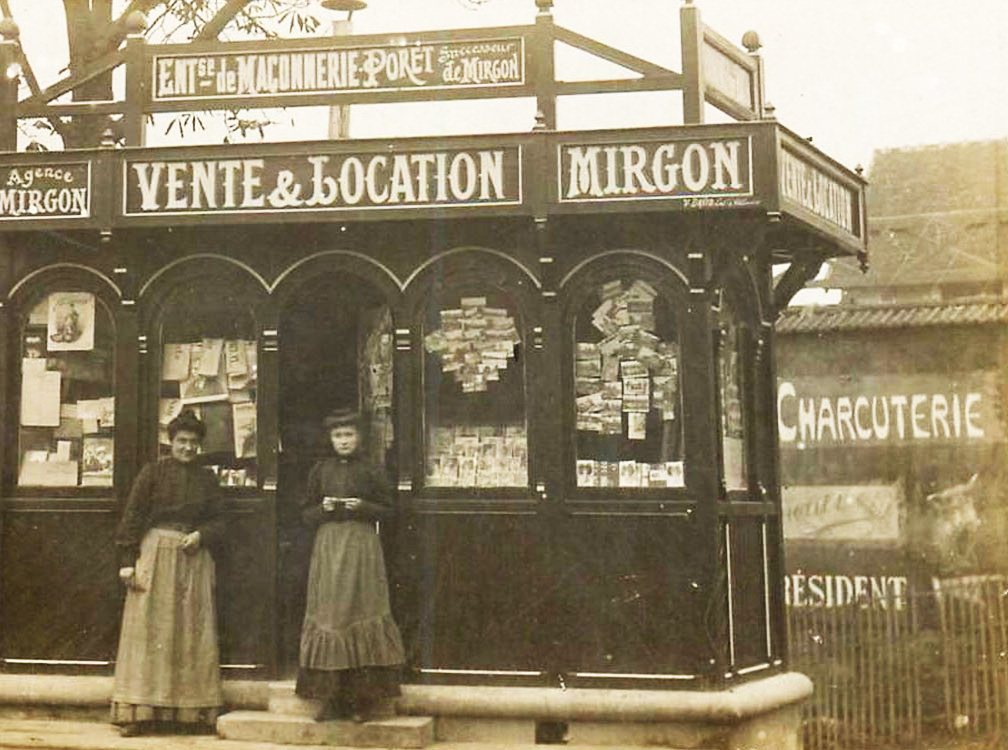 ENTSE de MAÇONNERIE-PORÉT Successeur de MIRGON
Agence
MIRGON
VENTE & LOCATION
MIRGON
VENTE & LOCATION
CHARCUTERIE
RÉSIDENT